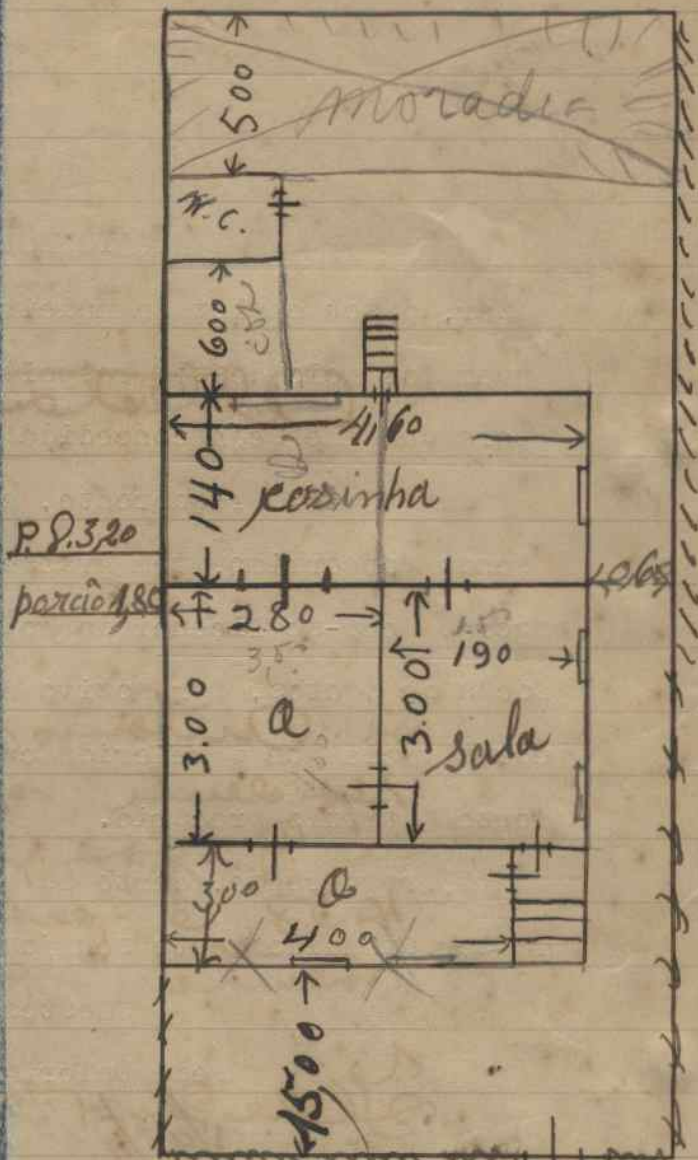 moradia
500
W.C.
600
4,60
140
cosinha
P. D. 3,20
porão 1,80
0,65
280
190
3.00
Q
3.00
sala
300
Q
400
1500